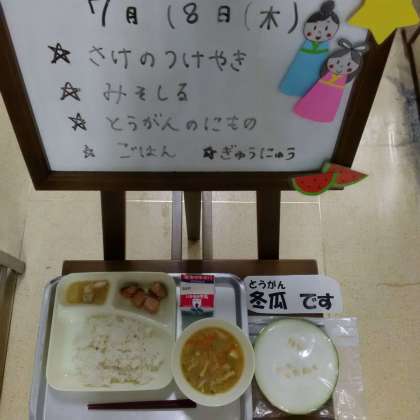 7月18日(木)
☆さけのつけやき
☆みそしる
☆とうがんのにもの
☆ごはん ★ぎゅうにゅう
とうがん
冬瓜 です